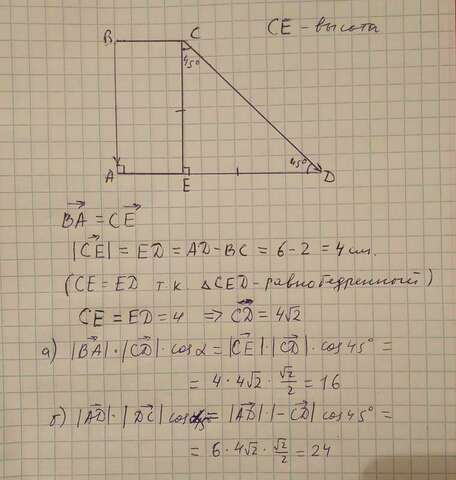 CE - высота
B C
45°
45°
A E D
BA→ = CE→
|CE→| = ED = AD - BC = 6 - 2 = 4 см.
(CE = ED т.к. △CED - равнобедренный)
CE = ED = 4 ⇒ CD→ = 4√2
а) |BA→| · |CD→| · cos α = |CE→| · |CD→| · cos 45° =
= 4 · 4√2 · √2/2 = 16
б) |AD→| · |DC→| cos = |AD→| · |-CD→| cos 45° =
= 6 · 4√2 · √2/2 = 24